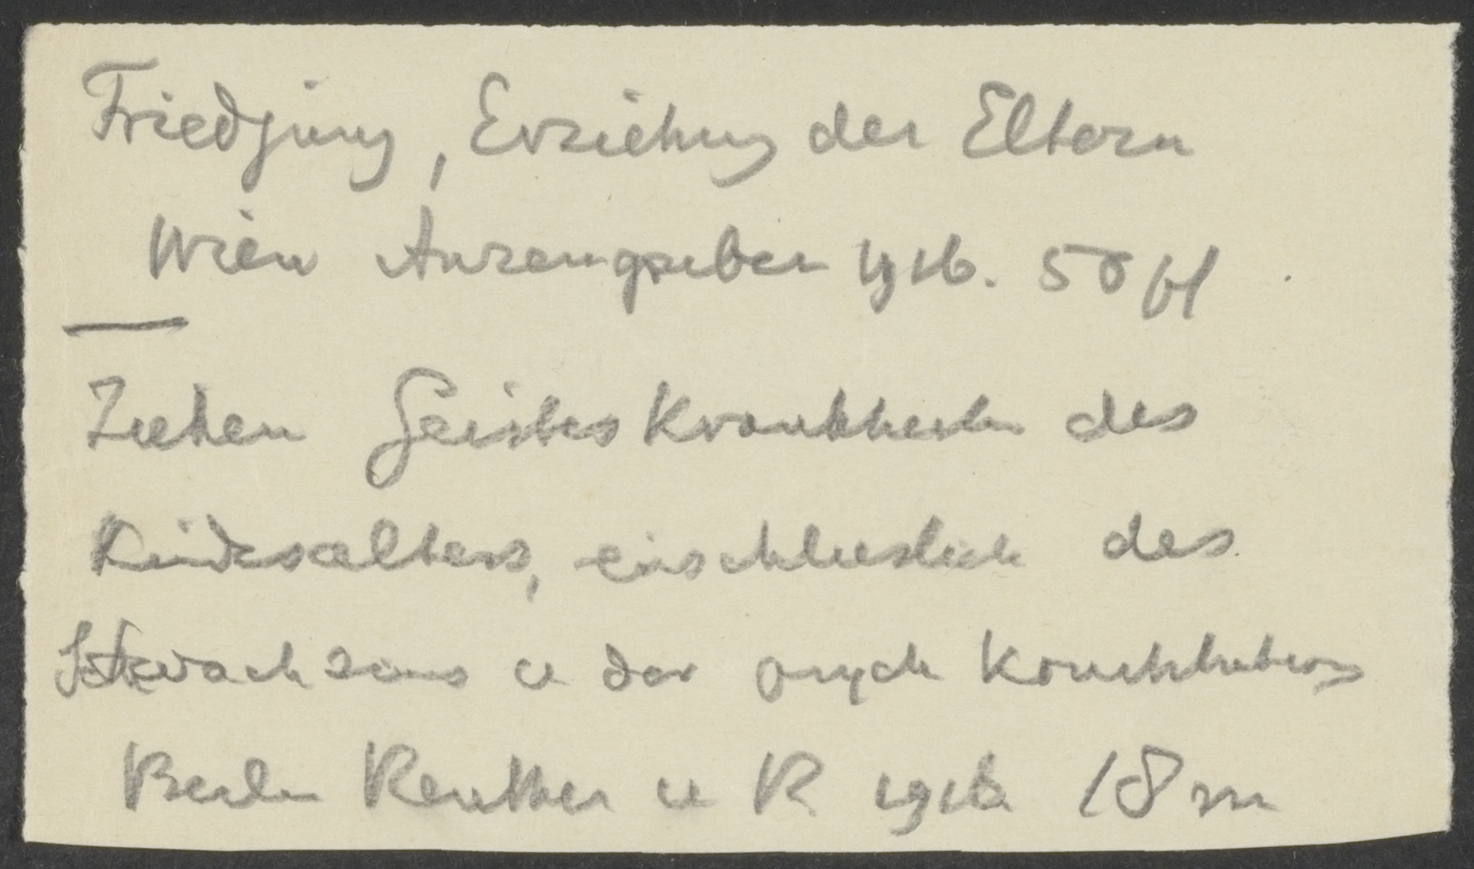 Friedjung, Erziehung der Eltern
Wien Anzengruber 1916. 50 pf
Ziehen Geisteskrankheiten des
Kindesalters, einschliesslich des
Schwachsinns u der psych Konst
Berlin Reuther u R 1916 18 m